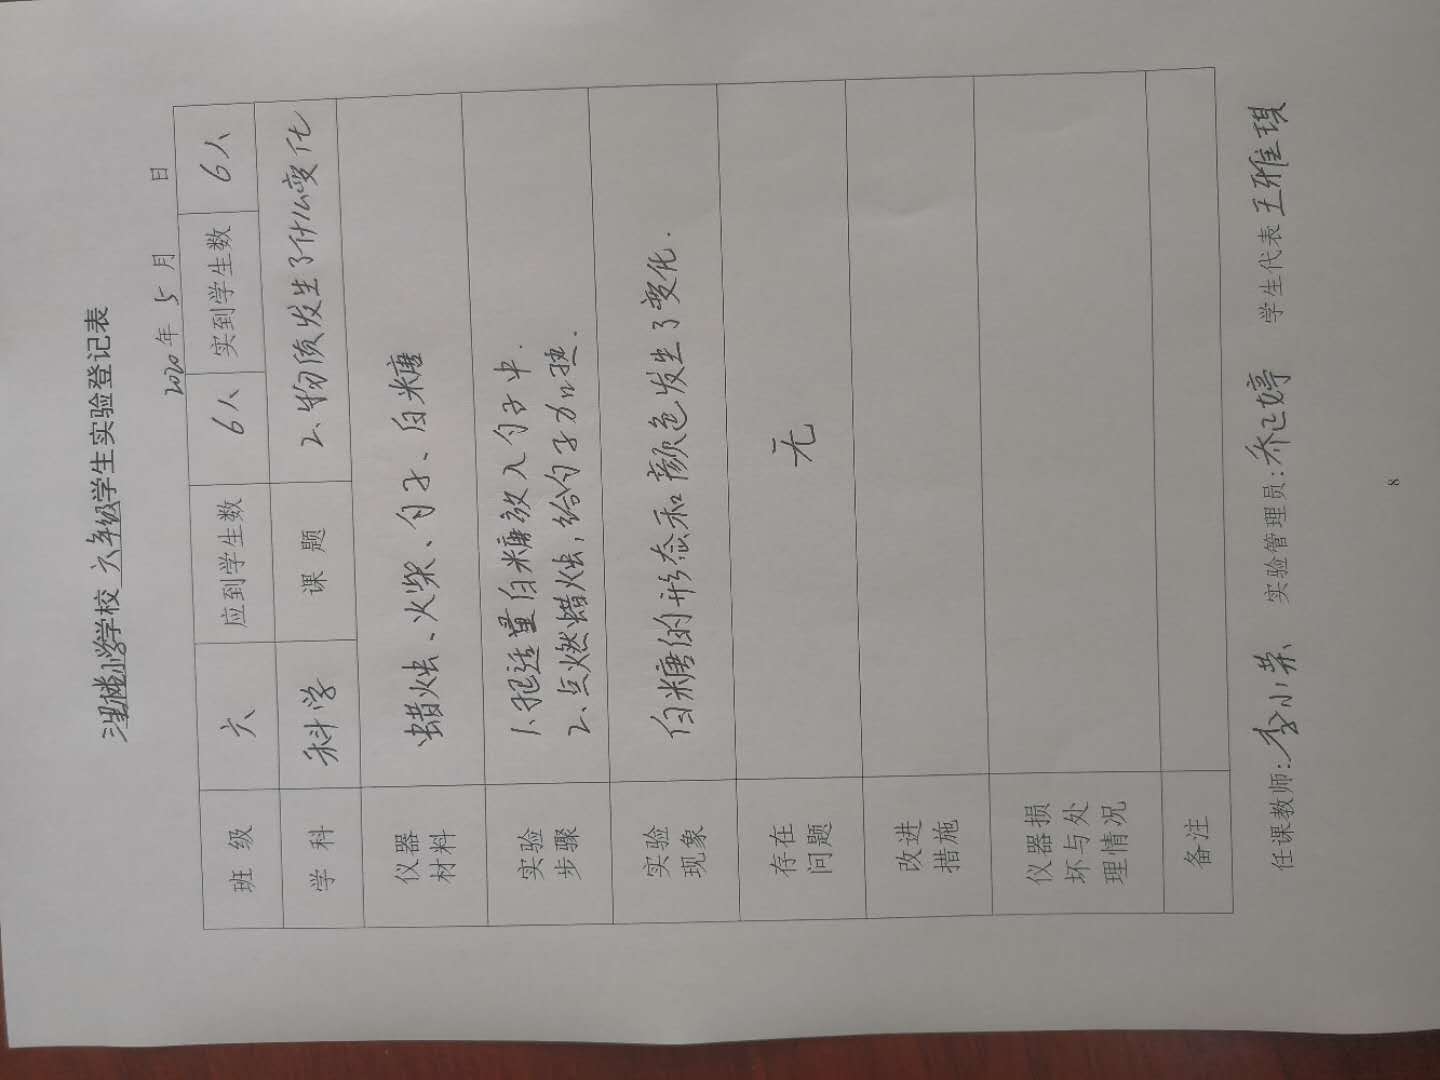 小学学校 六年级学生实验登记表
2020年 5 月 日
班 级 六 应到学生数 6人 实到学生数 6人
学 科 科学 课 题 2、物质发生了什么变化
仪器
材料
蜡烛、火柴、勺子、白糖
实验
步骤
1、把适量白糖放入勺子中.
2、点燃蜡烛,给勺子加热.
实验
现象
白糖的形态和颜色发生了变化.
存在
问题
无
改进
措施
仪器损
坏与处
理情况
备注
任课教师:李小荣 实验管理员:乔正婷 学生代表 王雅琪
8